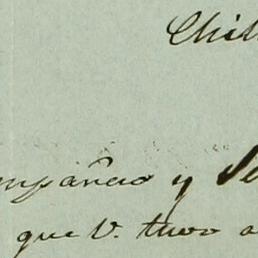 Chil
mpañero y Se
que V. tuvo a